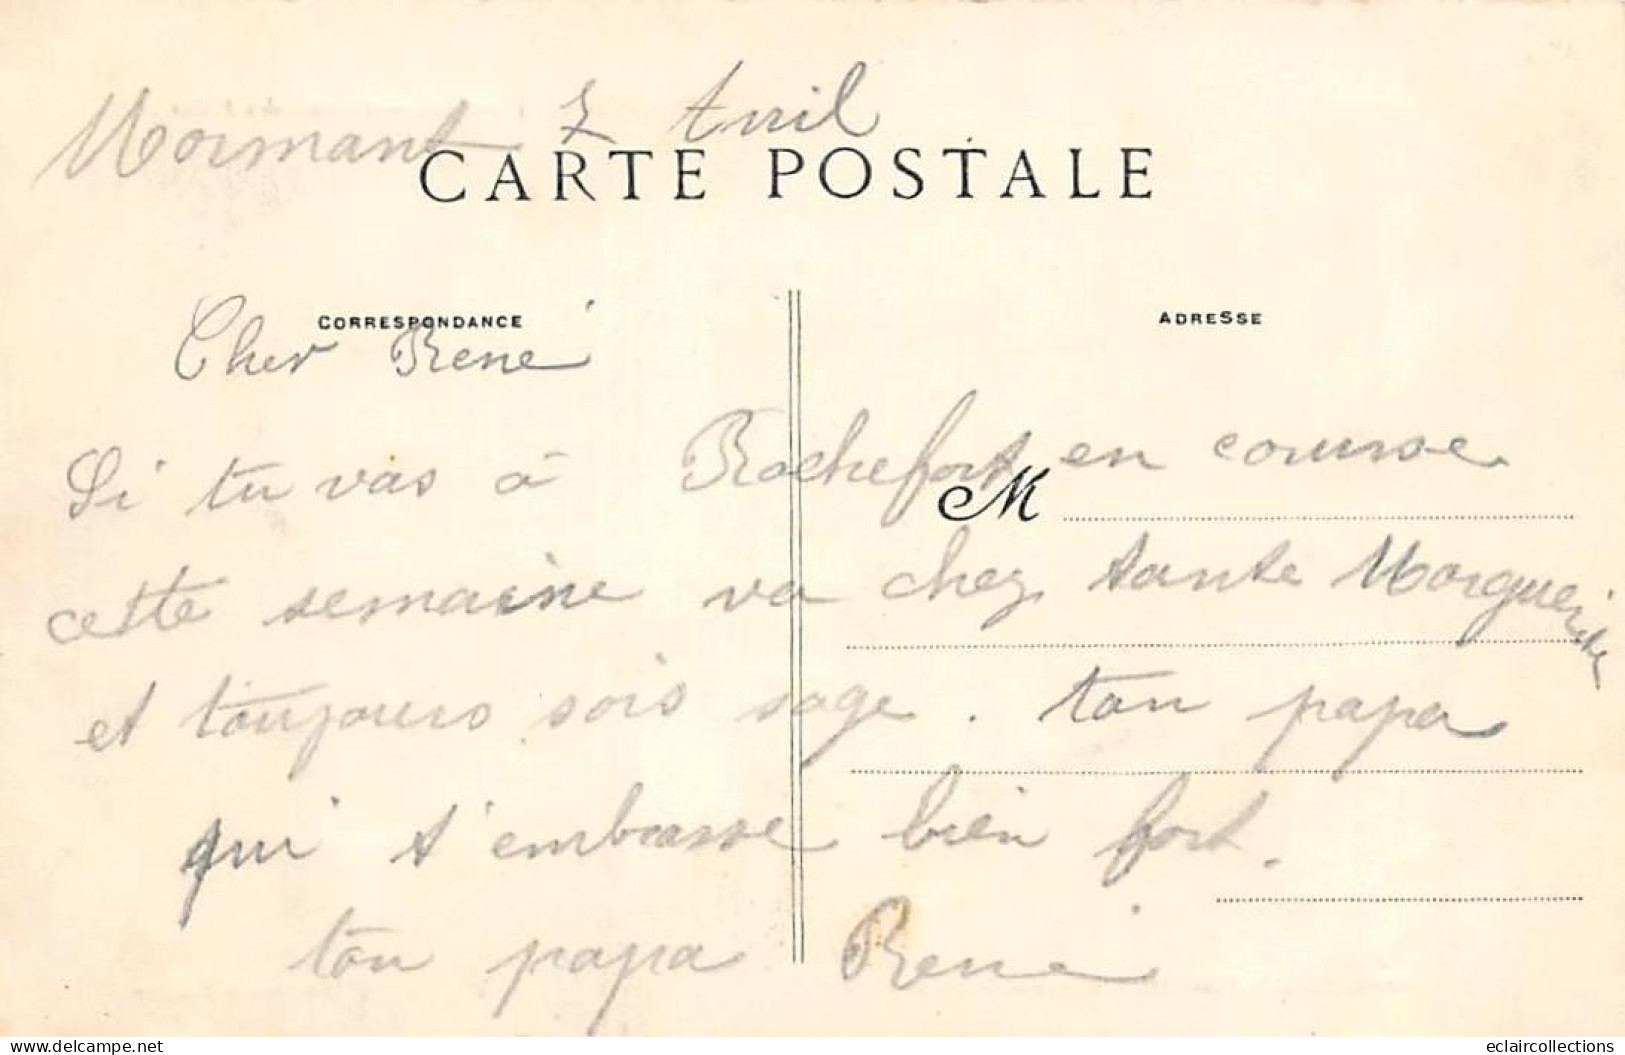 Mormant 7 Avril
CARTE POSTALE
CORRESPONDANCE
ADRESSE
Cher René
Si tu vas à Rochefort en course
M
cette semaine va chez tante
et toujours sois sage. ton papa
qui t'embrasse bien fort.
ton papa René
www.delcampe.net
eclaircollections